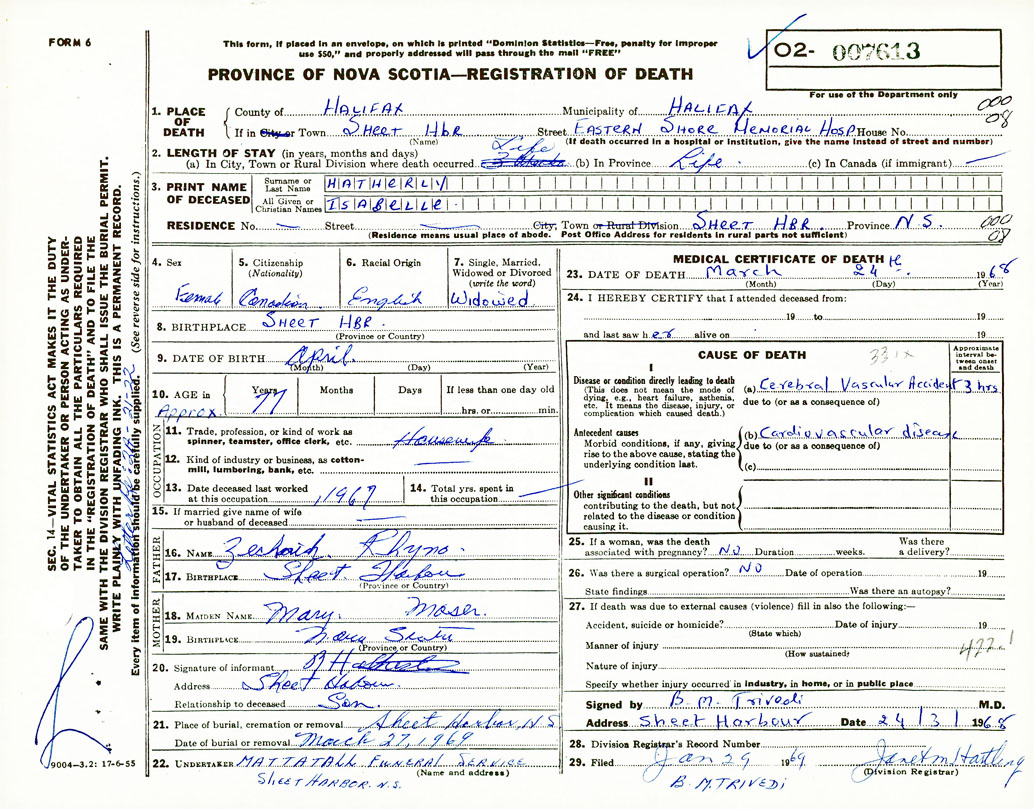 FORM 6
This form, if placed in an envelope, on which is printed "Dominion Statistics—Free, penalty for improper
use $50," and properly addressed will pass through the mail "FREE"
O2- 007613
For use of the Department only
PROVINCE OF NOVA SCOTIA—REGISTRATION OF DEATH
000
08
1. PLACE OF DEATH
County of HALIFAX Municipality of HALIFAX
If in City or Town SHEET HBR Street EASTERN SHORE MEMORIAL HOSP. House No.
(Name) (If death occurred in a hospital or institution, give the name instead of street and number)
2. LENGTH OF STAY (in years, months and days)
Life
(a) In City, Town or Rural Division where death occurred (b) In Province Life. (c) In Canada (if immigrant) —
3. PRINT NAME OF DECEASED
Surname or Last Name HATHERLY
All Given or Christian Names ISABELLE.
RESIDENCE No. — Street — City, Town or Rural Division SHEET HBR. Province N.S.
(Residence means usual place of abode. Post Office Address for residents in rural parts not sufficient)
000
08
4. Sex
Female
5. Citizenship
(Nationality)
Canadian
6. Racial Origin
English
7. Single, Married,
Widowed or Divorced
(write the word)
Widowed
8. BIRTHPLACE SHEET HBR.
(Province or Country)
9. DATE OF BIRTH April.
(Month) (Day) (Year)
10. AGE in Approx.
Years 77
Months
Days
If less than one day old
hrs. or min.
OCCUPATION
11. Trade, profession, or kind of work as
spinner, teamster, office clerk, etc. Housewife
12. Kind of industry or business, as cotton-
mill, lumbering, bank, etc. —
13. Date deceased last worked
at this occupation 1967
14. Total yrs. spent in
this occupation —
15. If married give name of wife
or husband of deceased —
FATHER
16. NAME Rhyno.
17. BIRTHPLACE Sheet Harbour
(Province or Country)
MOTHER
18. MAIDEN NAME. Mary. Moser.
19. BIRTHPLACE Nova Scotia
(Province or Country)
20. Signature of informant
Address Sheet Harbour.
Relationship to deceased Son.
21. Place of burial, cremation or removal Sheet Harbor, N.S.
Date of burial or removal March 27, 1969
22. UNDERTAKER MATTATALL FUNERAL SERVICE
(Name and address)
SHEET HARBOR. N.S.
MEDICAL CERTIFICATE OF DEATH
23. DATE OF DEATH March 24 1968
(Month) (Day) (Year)
24. I HEREBY CERTIFY that I attended deceased from:
19 to 19
and last saw her alive on 19
CAUSE OF DEATH
331x
Approximate
interval be-
tween onset
and death
I
Disease or condition directly leading to death
(This does not mean the mode of
dying, e.g., heart failure, asthenia,
etc. It means the disease, injury, or
complication which caused death.)
(a) Cerebral Vascular Accident 3 hrs
due to (or as a consequence of)
Antecedent causes
Morbid conditions, if any, giving
rise to the above cause, stating the
underlying condition last.
(b) Cardiovascular disease
due to (or as a consequence of)
(c)
II
Other significant conditions
contributing to the death, but not
related to the disease or condition
causing it.
25. If a woman, was the death
associated with pregnancy? NO Duration weeks. Was there
a delivery?
26. Was there a surgical operation? NO Date of operation 19
State findings Was there an autopsy?
27. If death was due to external causes (violence) fill in also the following:—
Accident, suicide or homicide? Date of injury 19
(State which)
Manner of injury
(How sustained)
422.1
Nature of injury
Specify whether injury occurred in industry, in home, or in public place
Signed by B. M. Trivedi M.D.
Address Sheet Harbour Date 24/3/1968
28. Division Registrar's Record Number
29. Filed Jan 29 1969 Janet M Hartling
(Division Registrar)
B. M. TRIVEDI
SEC. 14—VITAL STATISTICS ACT MAKES IT THE DUTY
OF THE UNDERTAKER OR PERSON ACTING AS UNDER-
TAKER TO OBTAIN ALL THE PARTICULARS REQUIRED
IN THE "REGISTRATION OF DEATH" AND TO FILE THE
SAME WITH THE DIVISION REGISTRAR WHO SHALL ISSUE THE BURIAL PERMIT.
WRITE PLAINLY WITH UNFADING INK. THIS IS A PERMANENT RECORD.
Every item of information should be carefully supplied. (See reverse side for instructions.)
9004—3.2: 17-6-55